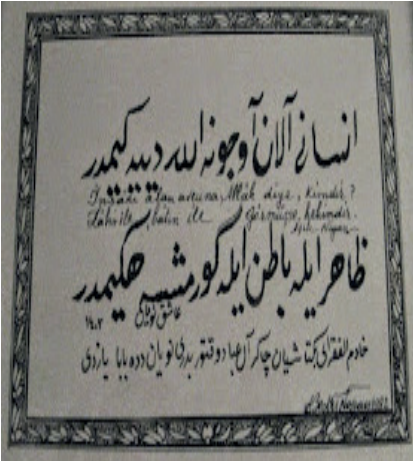 انسانی آلان آوجونه الله دییه کیمدر
İnsanı alan avcuna, Allâh diye, kimdir?
Zâhir ile, bâtın ile görmüşse, hekimdir.
Aşık Noyan
ظاهر ایله باطن ایله گورمشسه حکیمدر
عاشق نویان
۱۴۰۲
خادم الفقرای بکتاشیان چاکر آل عبا دوقتور بدری نویان دده بابا یازدی